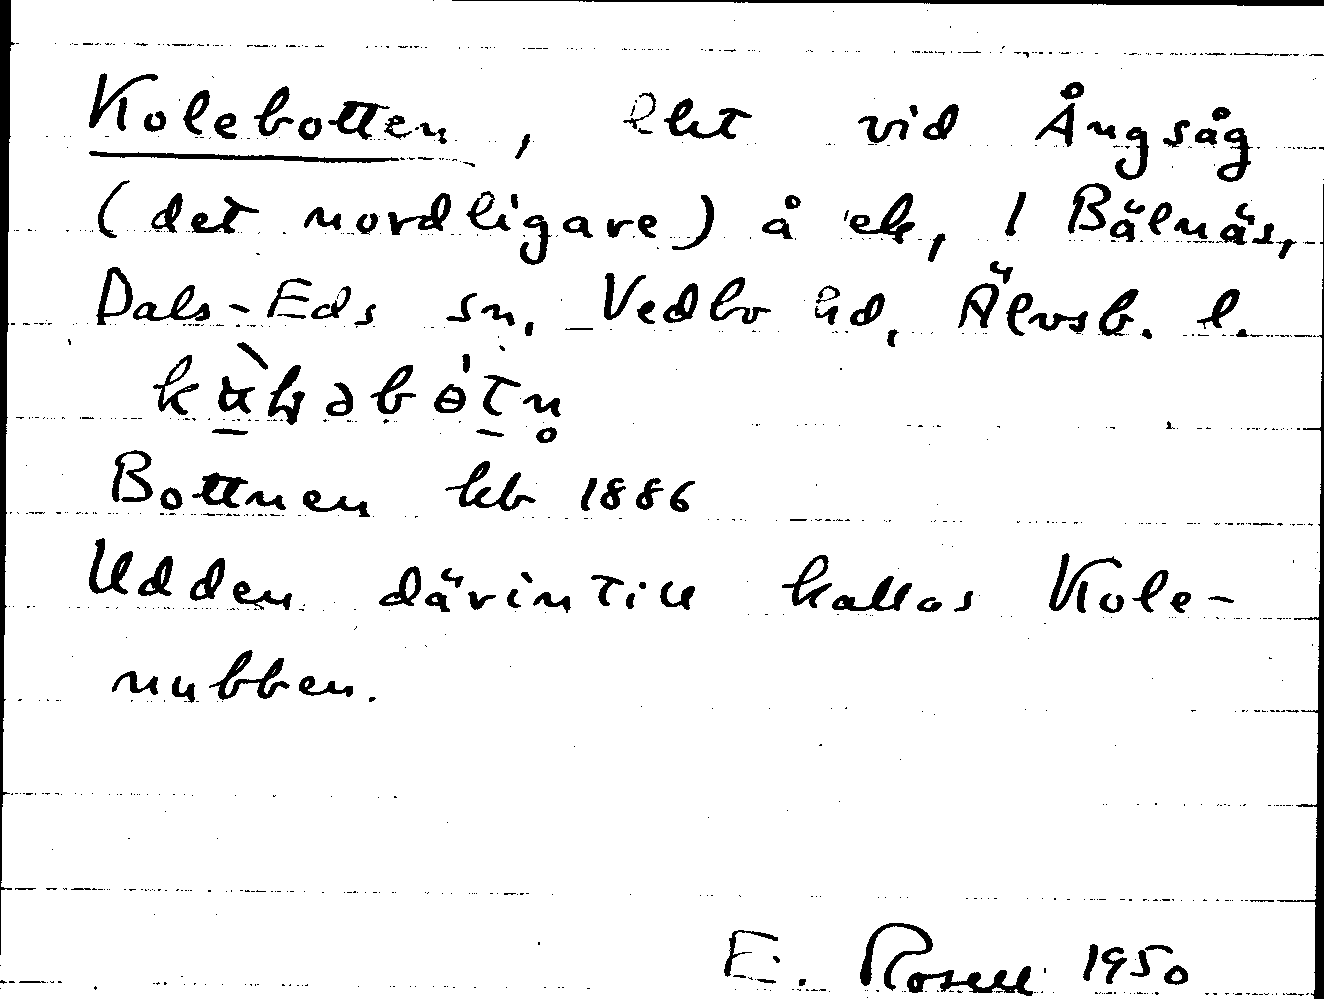 Kolebotten, lht vid Ångsåg
(det nordligare) å ek, 1 Bälnäs,
Dals-Eds sn, Vedbo hd, Älvsb. l.
Bottnen kb 1886
Udden därintill kallas Kole-
nubben.
E. Rosell 1950